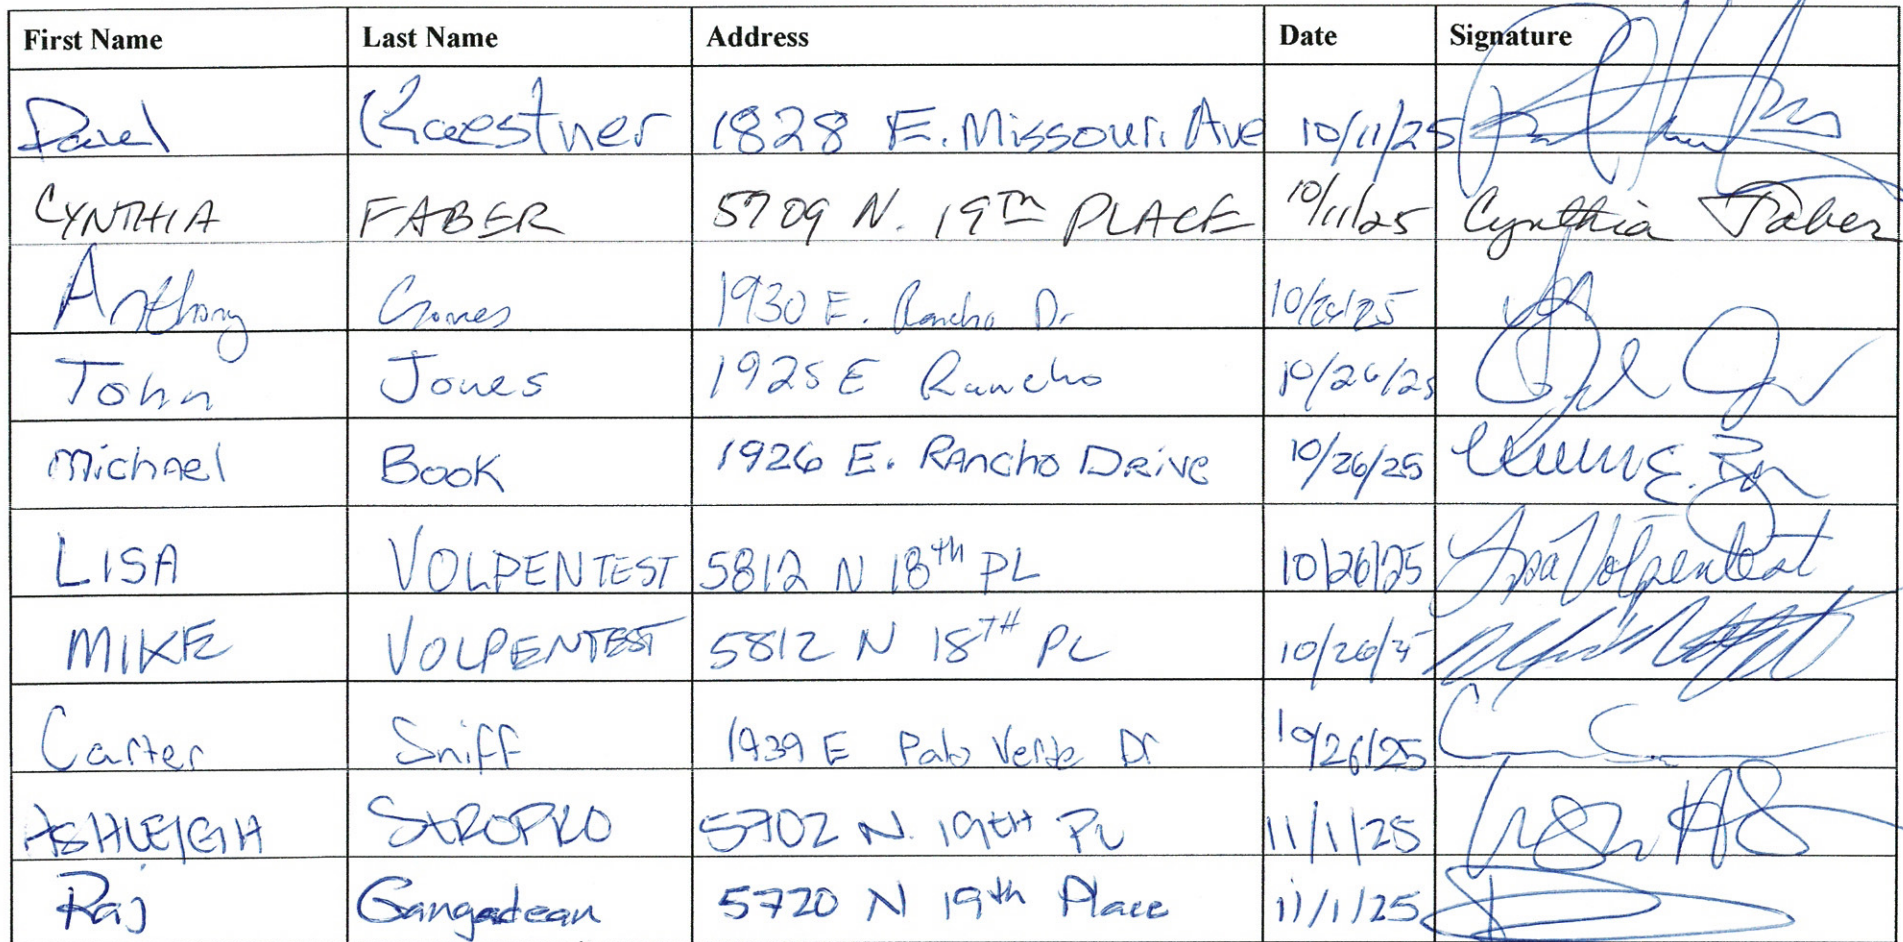 First Name Last Name Address Date Signature
Kaestner 1828 E. Missouri Ave 10/11/25
CYNTHIA FABER 5709 N. 19TH PLACE 10/11/25 Cynthia Faber
Anthony 1930 E. Rancho Dr
John Jones 1925 E Rancho 10/26/25
Michael Book 1926 E. Rancho Drive 10/26/25
LISA VOLPENTEST 5812 N 18th PL 10/26/25 Lisa Volpentest
MIKE VOLPENTEST 5812 N 18TH PL
Carter Sniff 1939 E Palo Verde Dr 10/26/25
ASHLEIGH 5702 N. 19TH PL 11/1/25
Raj Gangadean 5720 N 19th Place 11/1/25